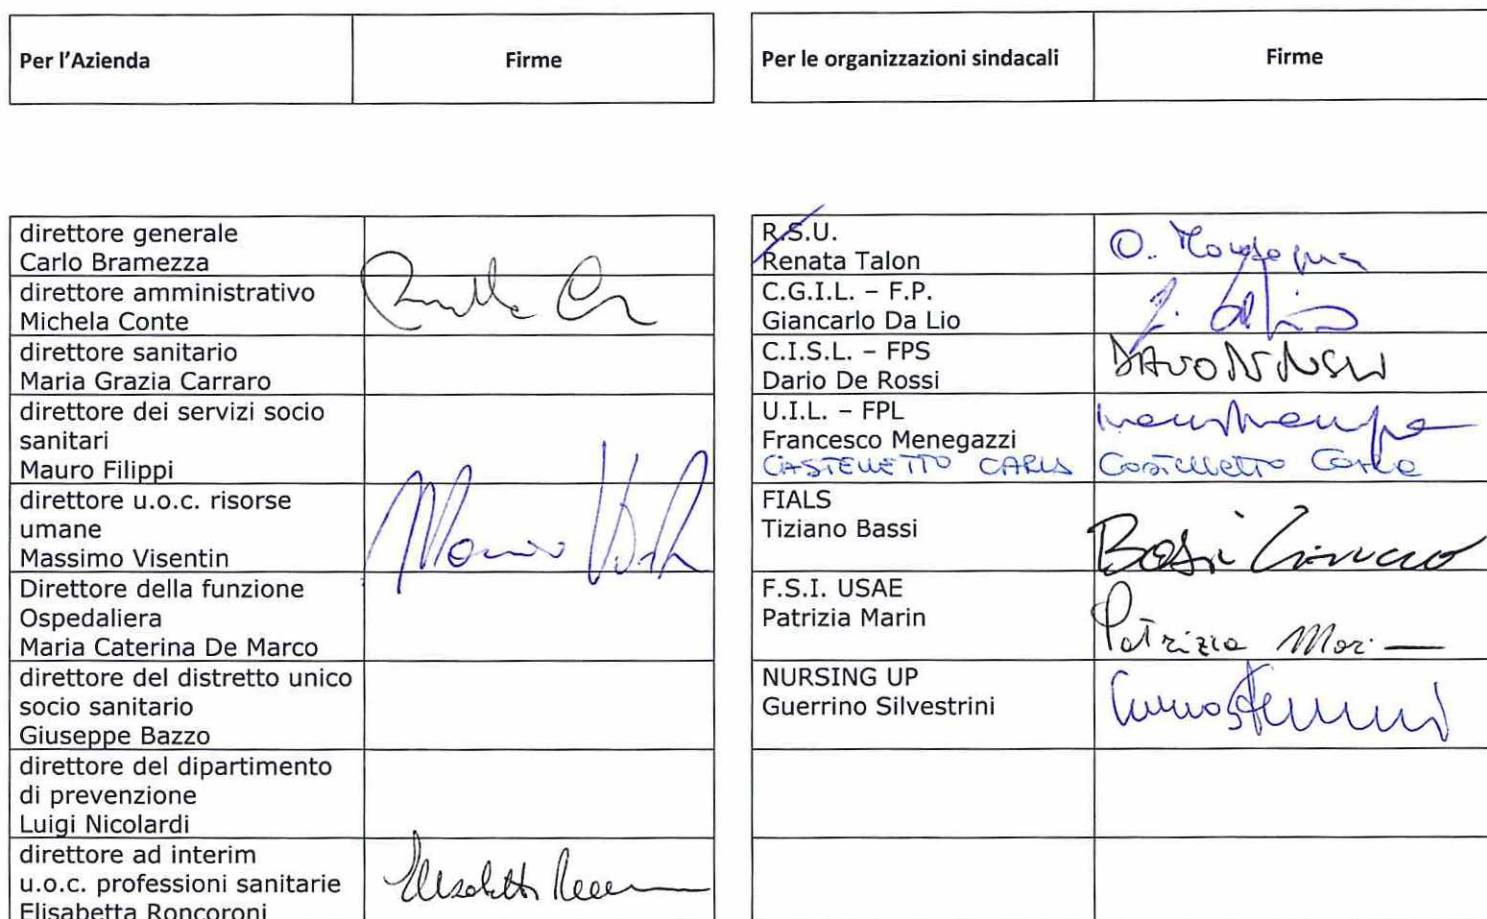 Per l'Azienda
Firme
direttore generale
Carlo Bramezza
direttore amministrativo
Michela Conte
direttore sanitario
Maria Grazia Carraro
direttore dei servizi socio
sanitari
Mauro Filippi
direttore u.o.c. risorse
umane
Massimo Visentin
Direttore della funzione
Ospedaliera
Maria Caterina De Marco
direttore del distretto unico
socio sanitario
Giuseppe Bazzo
direttore del dipartimento
di prevenzione
Luigi Nicolardi
direttore ad interim
u.o.c. professioni sanitarie
Elisabetta Roncoroni
Per le organizzazioni sindacali
Firme
R.S.U.
Renata Talon
C.G.I.L. – F.P.
Giancarlo Da Lio
C.I.S.L. – FPS
Dario De Rossi
U.I.L. – FPL
Francesco Menegazzi
CASTELLETTO CARLA Castelletto Carla
FIALS
Tiziano Bassi
F.S.I. USAE
Patrizia Marin
Patrizia Marin
NURSING UP
Guerrino Silvestrini